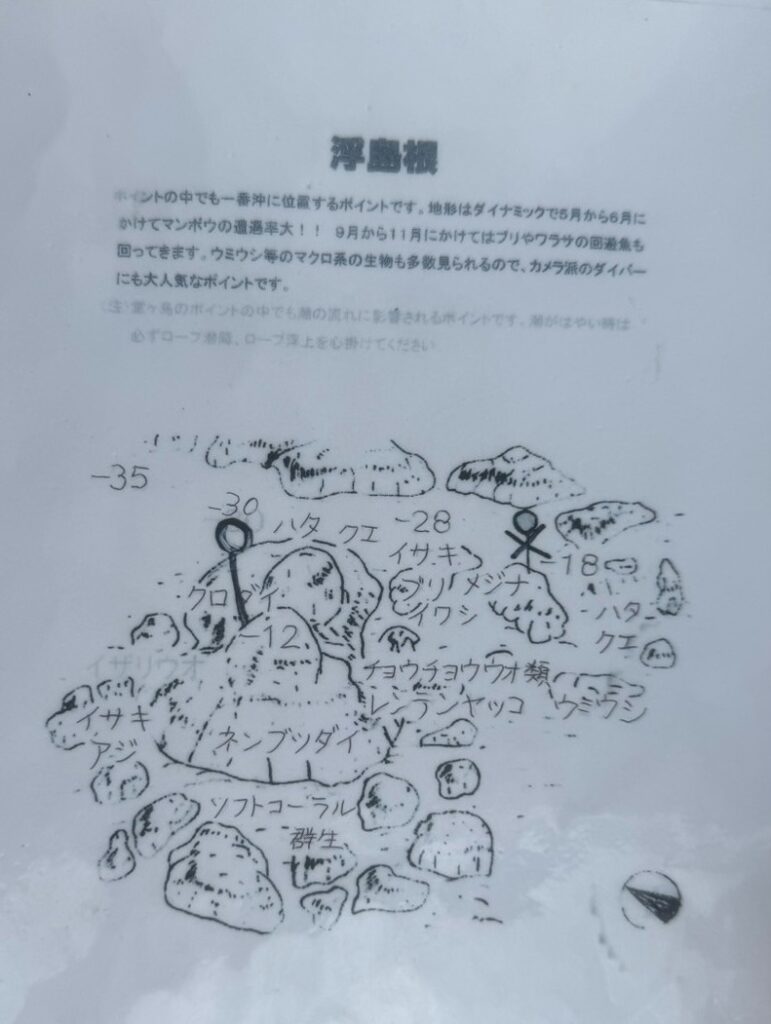 浮島根
ポイントの中でも一番沖に位置するポイントです。地形はダイナミックで5月から6月に
かけてマンボウの遭遇率大！！ 9月から11月にかけてはブリやワラサの回遊魚も
回ってきます。ウミウシ等のマクロ系の生物も多数見られるので、カメラ派のダイバー
にも大人気なポイントです。
(注)堂ヶ島のポイントの中でも潮の流れに影響されるポイントです。潮がはやい時は
必ずロープ潜降、ロープ浮上を心掛けてください
-35
-30
ハタ クエ
-28
イサキ
-18
クロダイ
ブリ メジナ
イワシ
ハタ
クエ
-12
イザリウオ
チョウチョウウオ類
レンテンヤッコ ウミウシ
イサキ
アジ
ネンブツダイ
ソフトコーラル
群生